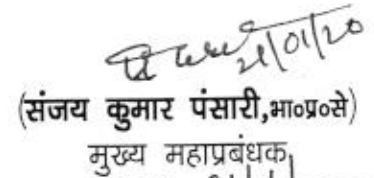 21/01/20
(संजय कुमार पंसारी,भा०प्र०से)
मुख्य महाप्रबंधक